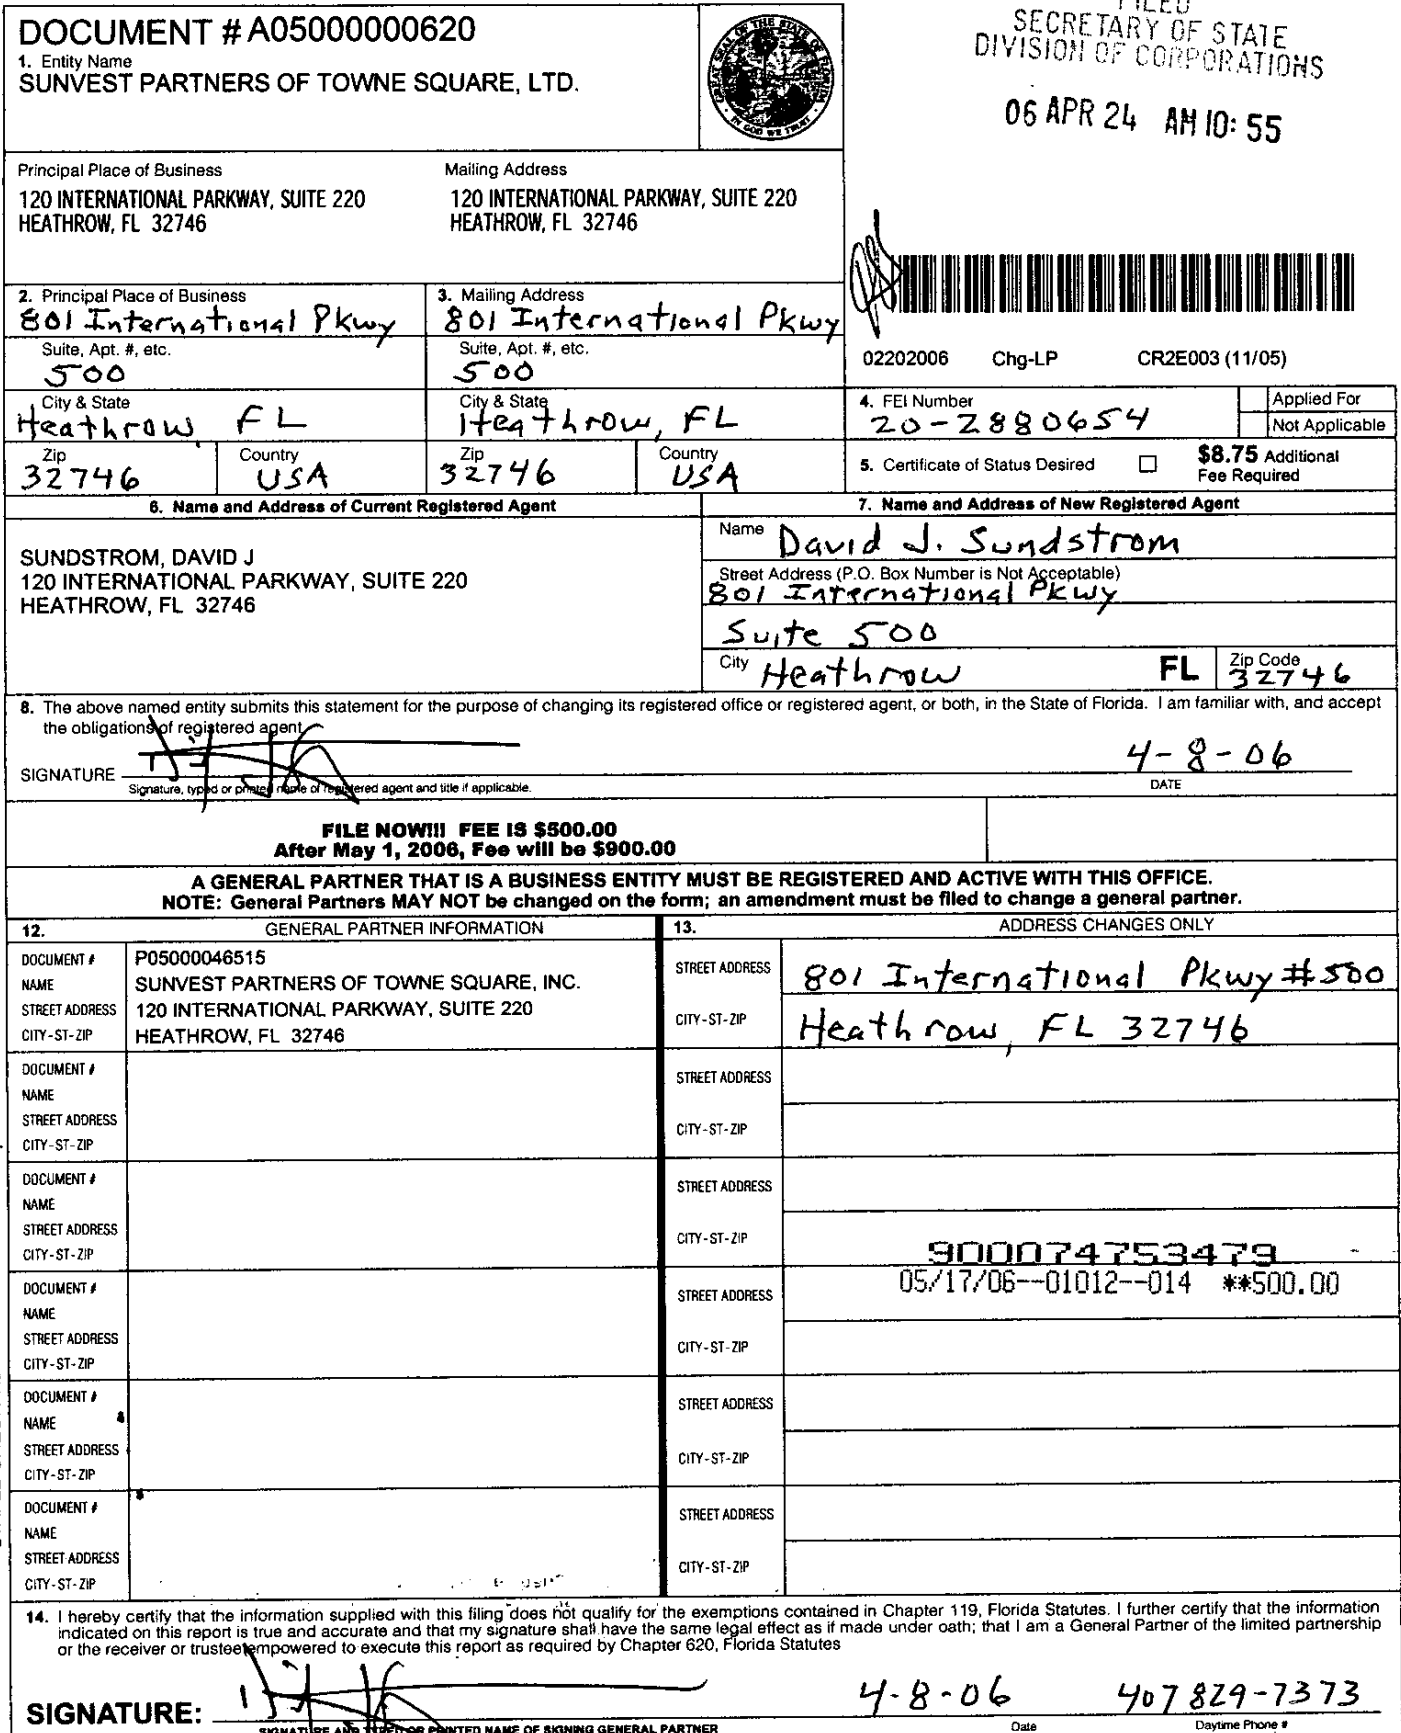 DOCUMENT # A05000000620
1. Entity Name
SUNVEST PARTNERS OF TOWNE SQUARE, LTD.
GREAT SEAL OF THE STATE OF FLORIDA
IN GOD WE TRUST
FILED
SECRETARY OF STATE
DIVISION OF CORPORATIONS
06 APR 24 AM 10: 55
Principal Place of Business
120 INTERNATIONAL PARKWAY, SUITE 220
HEATHROW, FL 32746
Mailing Address
120 INTERNATIONAL PARKWAY, SUITE 220
HEATHROW, FL 32746
2. Principal Place of Business
801 International Pkwy
Suite, Apt. #, etc.
500
City & State
Heathrow, FL
Zip
32746
Country
USA
3. Mailing Address
801 International Pkwy
Suite, Apt. #, etc.
500
City & State
Heathrow, FL
Zip
32746
Country
USA
02202006 Chg-LP CR2E003 (11/05)
4. FEI Number
20-2880654
Applied For
Not Applicable
5. Certificate of Status Desired
$8.75 Additional
Fee Required
6. Name and Address of Current Registered Agent
SUNDSTROM, DAVID J
120 INTERNATIONAL PARKWAY, SUITE 220
HEATHROW, FL 32746
7. Name and Address of New Registered Agent
Name David J. Sundstrom
Street Address (P.O. Box Number is Not Acceptable)
801 International Pkwy
Suite 500
City Heathrow FL Zip Code 32746
8. The above named entity submits this statement for the purpose of changing its registered office or registered agent, or both, in the State of Florida. I am familiar with, and accept
the obligations of registered agent
SIGNATURE
4-8-06
Signature, typed or printed name of registered agent and title if applicable.
DATE
FILE NOW!!! FEE IS $500.00
After May 1, 2006, Fee will be $900.00
A GENERAL PARTNER THAT IS A BUSINESS ENTITY MUST BE REGISTERED AND ACTIVE WITH THIS OFFICE.
NOTE: General Partners MAY NOT be changed on the form; an amendment must be filed to change a general partner.
12. GENERAL PARTNER INFORMATION
13. ADDRESS CHANGES ONLY
DOCUMENT # P05000046515
NAME SUNVEST PARTNERS OF TOWNE SQUARE, INC.
STREET ADDRESS 120 INTERNATIONAL PARKWAY, SUITE 220
CITY-ST-ZIP HEATHROW, FL 32746
STREET ADDRESS 801 International Pkwy #500
CITY-ST-ZIP Heathrow, FL 32746
DOCUMENT #
NAME
STREET ADDRESS
CITY-ST-ZIP
STREET ADDRESS
CITY-ST-ZIP
DOCUMENT #
NAME
STREET ADDRESS
CITY-ST-ZIP
STREET ADDRESS
CITY-ST-ZIP
900074753479
05/17/06--01012--014 **500.00
DOCUMENT #
NAME
STREET ADDRESS
CITY-ST-ZIP
STREET ADDRESS
CITY-ST-ZIP
DOCUMENT #
NAME
STREET ADDRESS
CITY-ST-ZIP
STREET ADDRESS
CITY-ST-ZIP
DOCUMENT #
NAME
STREET ADDRESS
CITY-ST-ZIP
STREET ADDRESS
CITY-ST-ZIP
14. I hereby certify that the information supplied with this filing does not qualify for the exemptions contained in Chapter 119, Florida Statutes. I further certify that the information
indicated on this report is true and accurate and that my signature shall have the same legal effect as if made under oath; that I am a General Partner of the limited partnership
or the receiver or trustee empowered to execute this report as required by Chapter 620, Florida Statutes
SIGNATURE:
4-8-06 407 829-7373
SIGNATURE AND TYPED OR PRINTED NAME OF SIGNING GENERAL PARTNER
Date
Daytime Phone #